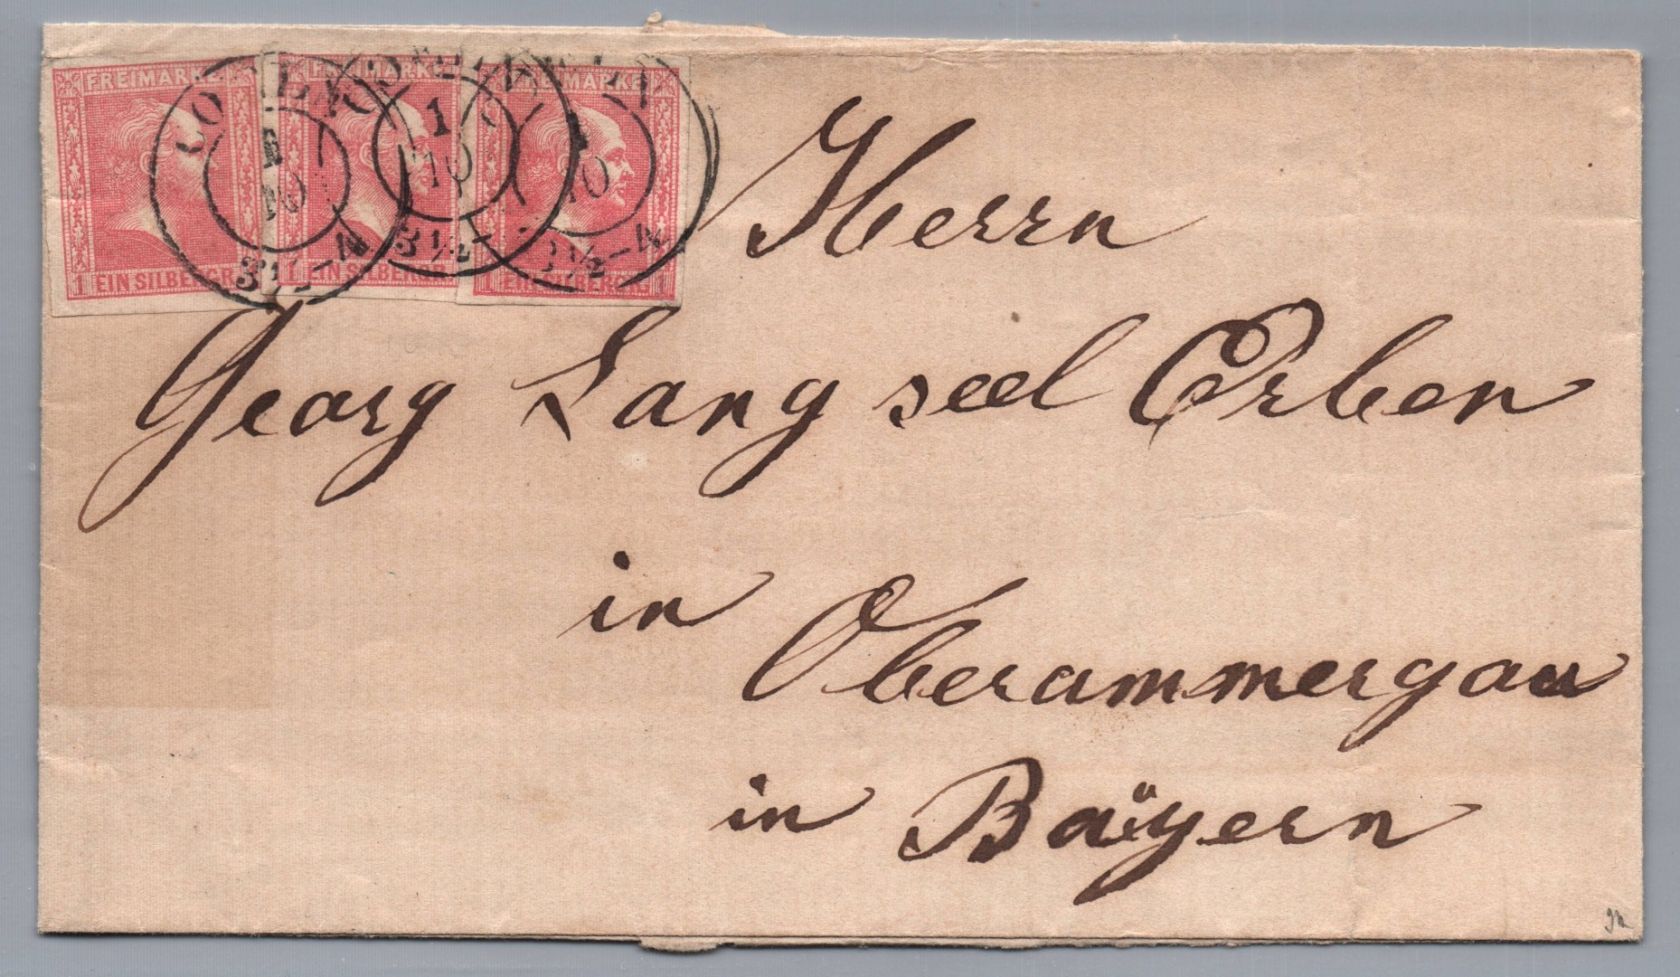 FREIMARKE FREIMARKE FREIMARKE
1 10 1 10 1 10
3½-4 3½- 3½-4
1 EIN SILBERGR. 1 EIN SILBERGR. 1 EIN SILBERGR. 1
Herrn
Georg Lang seel Erben
in
Oberammergau
in Baÿern